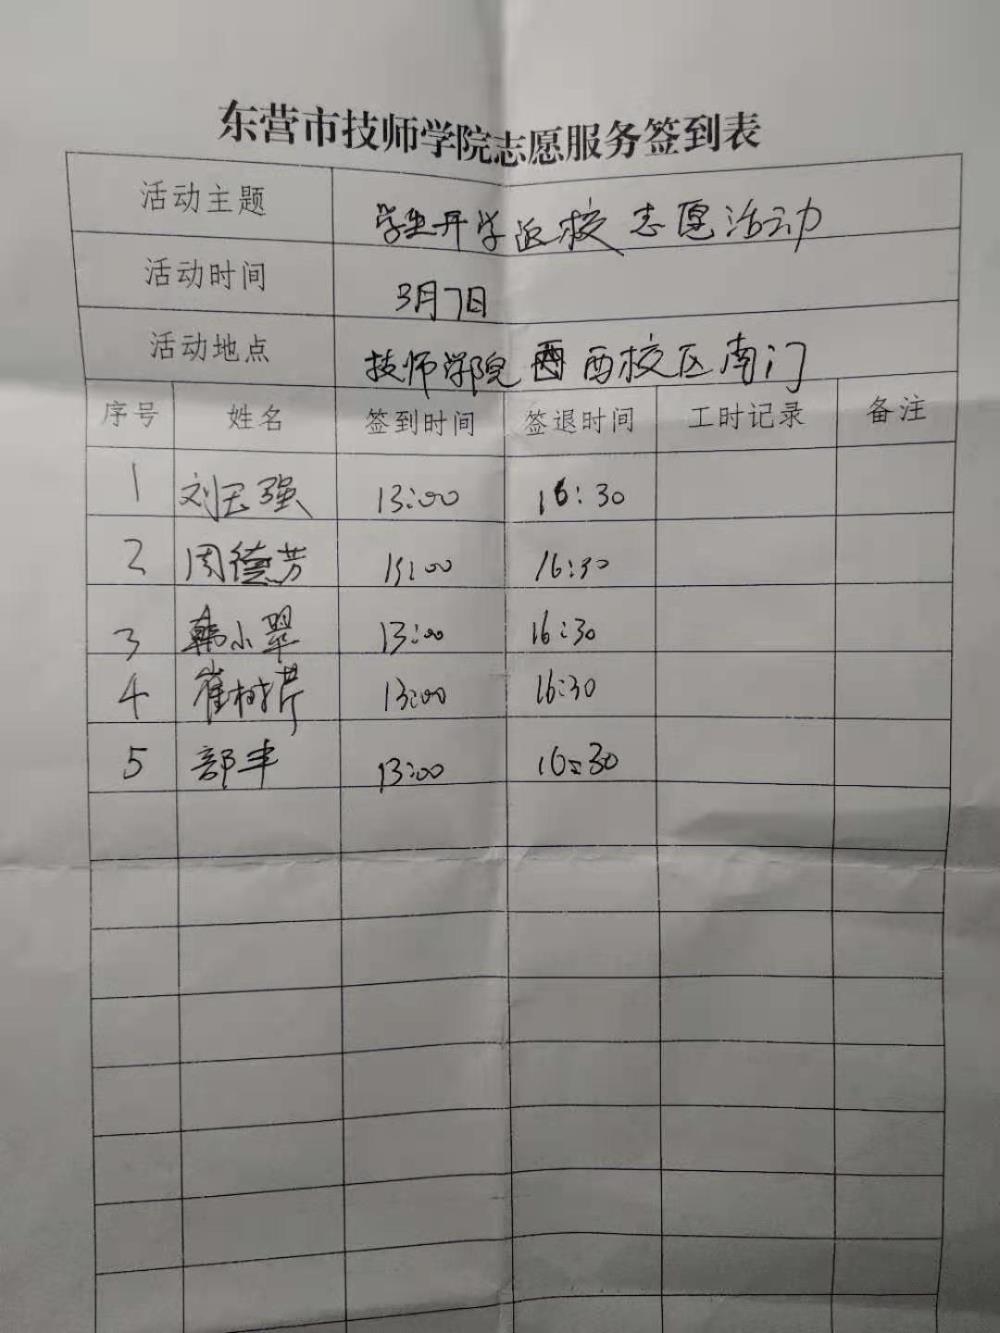 东营市技师学院志愿服务签到表
活动主题 学生开学返校志愿活动
活动时间 3月7日
活动地点 技师学院 西校区南门
序号 姓名 签到时间 签退时间 工时记录 备注
1 刘玉强 13:00 16:30
2 周德芳 13:00 16:30
3 韩小翠 13:00 16:30
4 崔树芹 13:00 16:30
5 部丰 13:00 16:30